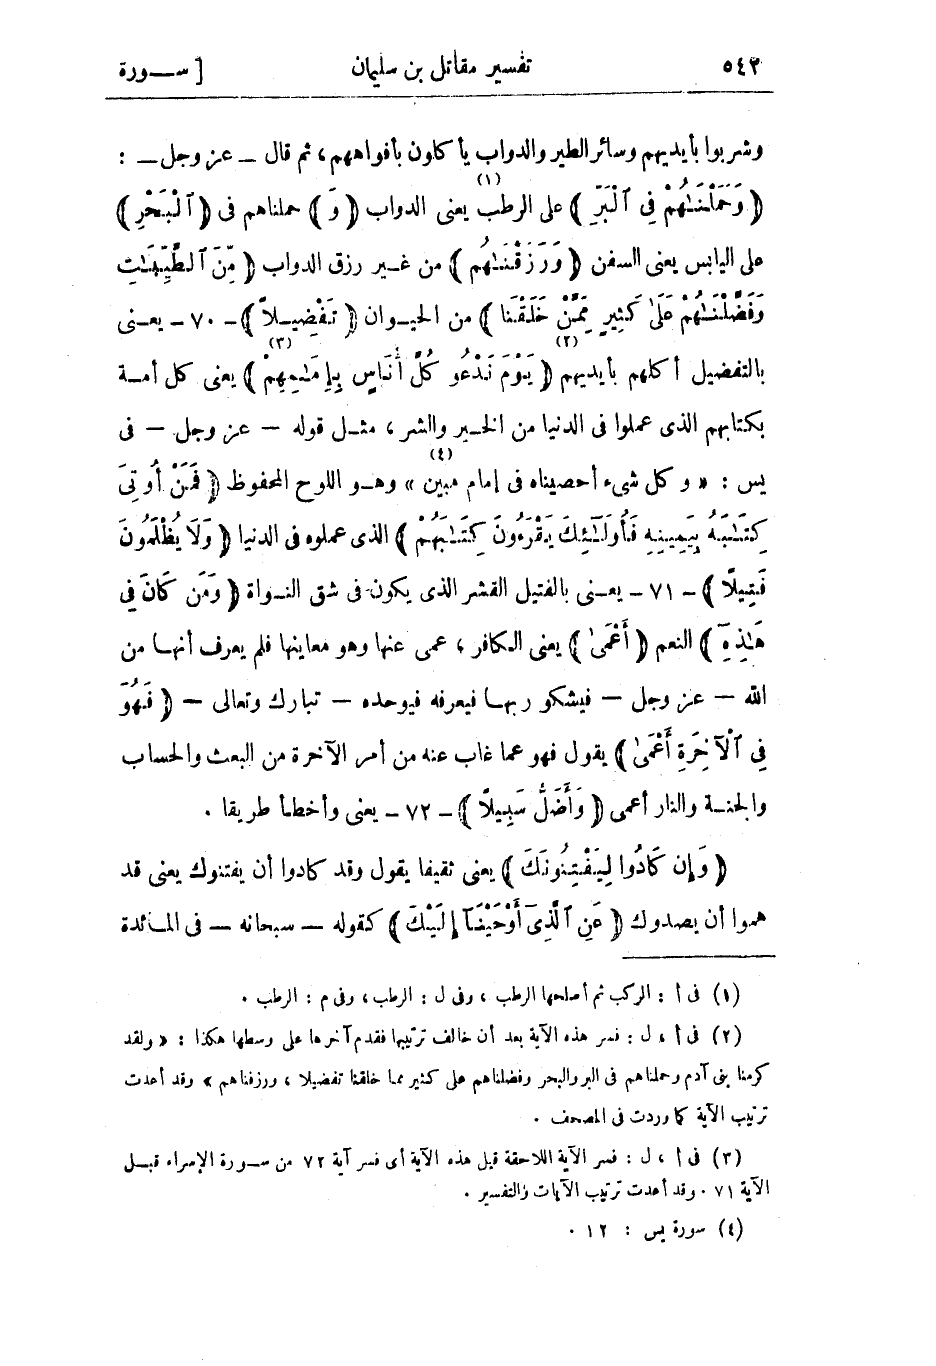 ٥٤٢ تفسير مقاتل بن سليمان [ ســورة
وشربوا بأيديهم وسائر الطير والدواب يأكلون بأفواههم، ثم قال ــ عز وجل ــ :
(وَحَمَلْنَـٰهُمْ فِى ٱلْبَرِّ) على الرطب (١) يعنى الدواب (وَ) حملناهم فى (ٱلْبَحْرِ)
على اليابس يعنى السفن (وَرَزَقْنَـٰهُم) من غـير رزق الدواب (مِّنَ ٱلطَّيِّبَـٰتِ
وَفَضَّلْنَـٰهُمْ عَلَىٰ كَثِيرٍ مِّمَّنْ خَلَقْنَا) من الحيـوان (تَفْضِيـلًا) ــ ٧٠ ــ يعـنى
بالتفضيل أكلهم بأيديهم (٢) (يَوْمَ نَدْعُو كُلَّ أُنَاسٍ بِإِمَـٰمِهِمْ) (٣) يعنى كل أمـة
بكتابهم الذى عملوا فى الدنيا من الخـير والشر، مثـل قوله ــ عز وجل ــ فى
يس : « وكل شىء أحصيناه فى إمام مبين » (٤) وهـو اللوح المحفوظ (فَمَنْ أُوتِىَ
كِتَـٰبَهُ بِيَمِينِهِ فَأُولَـٰٓئِكَ يَقْرَءُونَ كِتَـٰبَهُمْ) الذى عملوه فى الدنيا (وَلَا يُظْلَمُونَ
فَتِيلًا) ــ ٧١ ــ يعـنى بالفتيل القشر الذى يكون فى شق النـواة (وَمَن كَانَ فِى
هَـٰذِهِۦٓ) النعم (أَعْمَىٰ) يعنى الكافر، عمى عنها وهو معاينها فلم يعرف أنهـا من
الله ــ عز وجل ــ فيشكو ربهـا فيعرفه فيوحده ــ تبارك وتعالى ــ (فَهُوَ
فِى ٱلْآخِرَةِ أَعْمَىٰ) يقول فهو عما غاب عنه من أمر الآخرة من البعث والحساب
والجنـة والنار أعمى (وَأَضَلُّ سَبِيلًا) ــ ٧٢ ــ يعنى وأخطأ طريقا .
(وَإِن كَادُوا لَيَفْتِنُونَكَ) يعنى ثقيفا يقول وقد كادوا أن يفتنوك يعنى قد
هموا أن يصدوك (عَنِ ٱلَّذِىٓ أَوْحَيْنَآ إِلَيْكَ) كقوله ــ سبحانه ــ فى المـائدة
(١) فى أ : الركب ثم أصلحها الرطب ، وفى ل : الرطب ، وفى م : الرطب .
(٢) فى أ ، ل : فسر هذه الآية بعد أن خالف ترتيبها فقدم آخرها على وسطها هكذا : « ولقد
كرمنا بنى آدم وحملناهم فى البر والبحر وفضلناهم على كثير مما خلقنا تفضيلا ، ورزقناهم » وقد أعدت
ترتيب الآية كما وردت فى المصحف .
(٣) فى أ ، ل : فسر الآية اللاحقة قبل هذه الآية أى فسر آية ٧٢ من سـورة الإسراء قبـل
الآية ٧١ . وقد أعدت ترتيب الآيات والتفسير .
(٤) سورة يس : ١٢ .